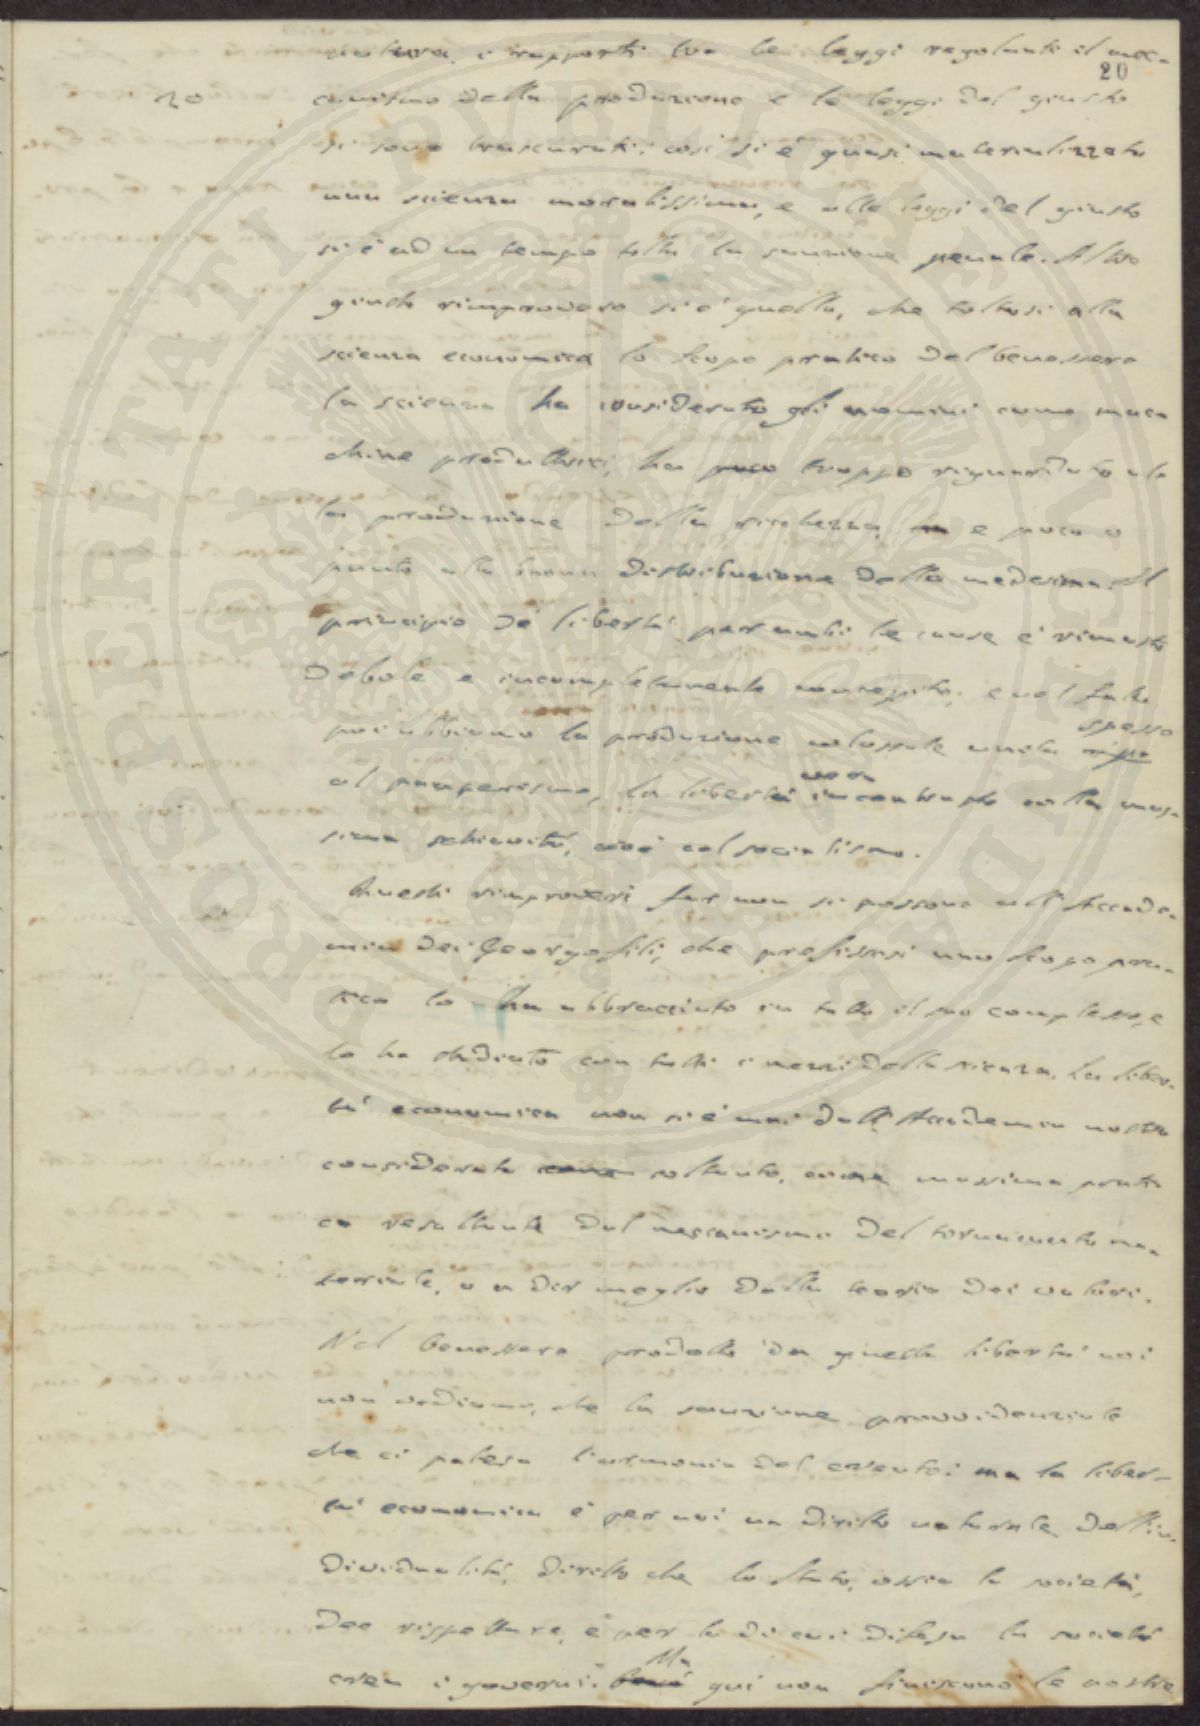 natura, i rapporti tra le leggi regolanti il mec-
20
20
canismo della produzione e le leggi del giusto
si sono trascurati; così si è quasi materializzato
una scienza moralissima, e alle leggi del giusto
si è ad un tempo tolta la sanzione penale. Altro
giusto rimprovero si è quello, che toltosi alla
scienza economica lo scopo pratico del benessere
la scienza ha considerato gli uomini come mac-
chine produttrici, ha poco troppo riguardato al
la produzione della ricchezza, e poco o
punto alla buona distribuzione della medesima. Il
principio di libertà per ambi le cause è rimasto
debole e incompletamente concepito; e nel fatto
poi abbiamo la produzione colossale unita spesso
al pauperismo, la libertà vera in contrasto colla mas-
sima schiavitù, cioè col socialismo.
Questi rimproveri far non si possono all'Accade-
mia dei Georgofili, che prefissasi uno scopo pra-
tico lo ha abbracciato in tutto il suo complesso, e
lo ha studiato con tutti i mezzi della scienza. La liber-
tà economica non si è mai dall'Accademia nostra
considerata come soltanto, come massima prati
ca resultante dal meccanismo del tornaconto ma-
teriale, o a dir meglio dalla teoria dei valori.
Nel benessere prodotto da quella libertà noi
non vediamo, che la sanzione provvidenziale
che ci palesa l'armonia del creato; ma la liber-
tà economica è per noi un diritto naturale dell'in-
dividualità, diritto che lo Stato, ossia la società,
dee rispettare, e per la di cui difesa la società
crea i governi. Ma qui non finiscono le nostre
PROSPERITATI PUBLICAE AUGENDAE